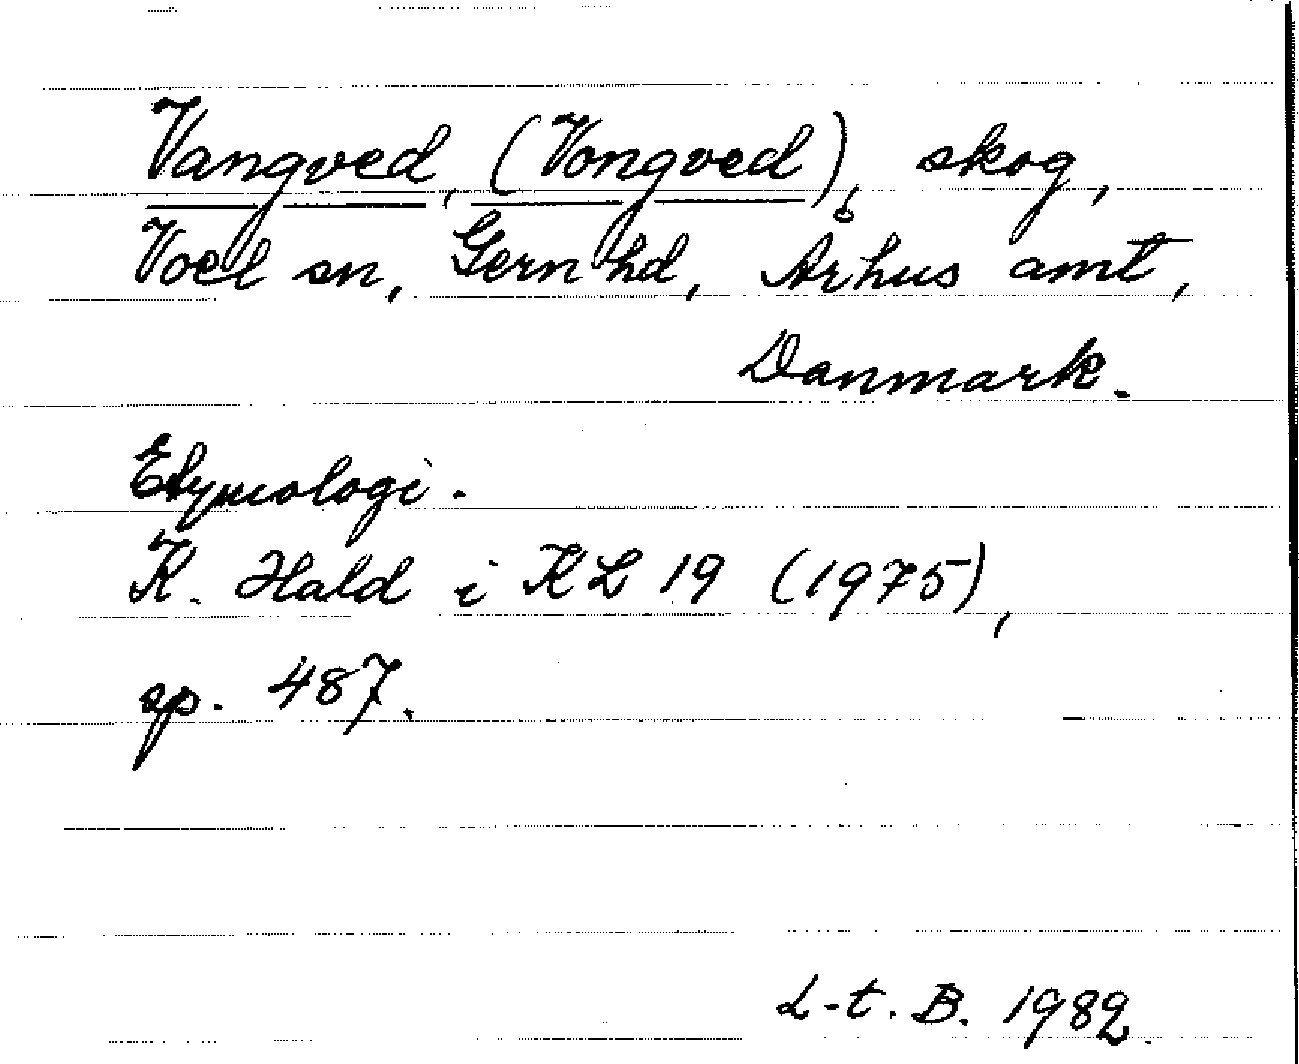 Vangved, (Vongved), skog,
Voel sn, Gern hd, Århus amt,
Danmark.
Etymologi.
K. Hald i KL 19 (1975),
sp. 487.
L-t. B. 1982.